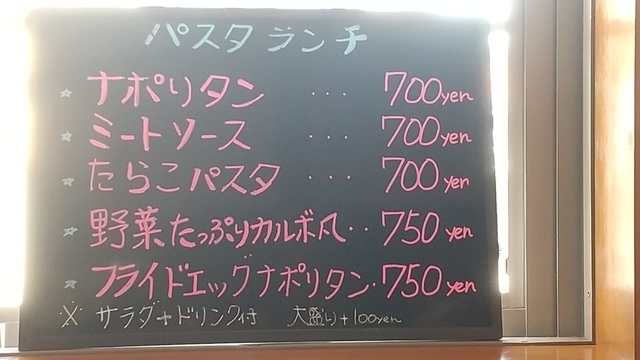 パスタランチ
☆ ナポリタン ・・・ 700yen
☆ ミートソース ・・・ 700yen
☆ たらこパスタ ・・・ 700yen
☆ 野菜たっぷりカルボ凡・・ 750yen
☆ フライドエッグナポリタン・ 750yen
※ サラダ+ドリンク付 大盛り+100yen